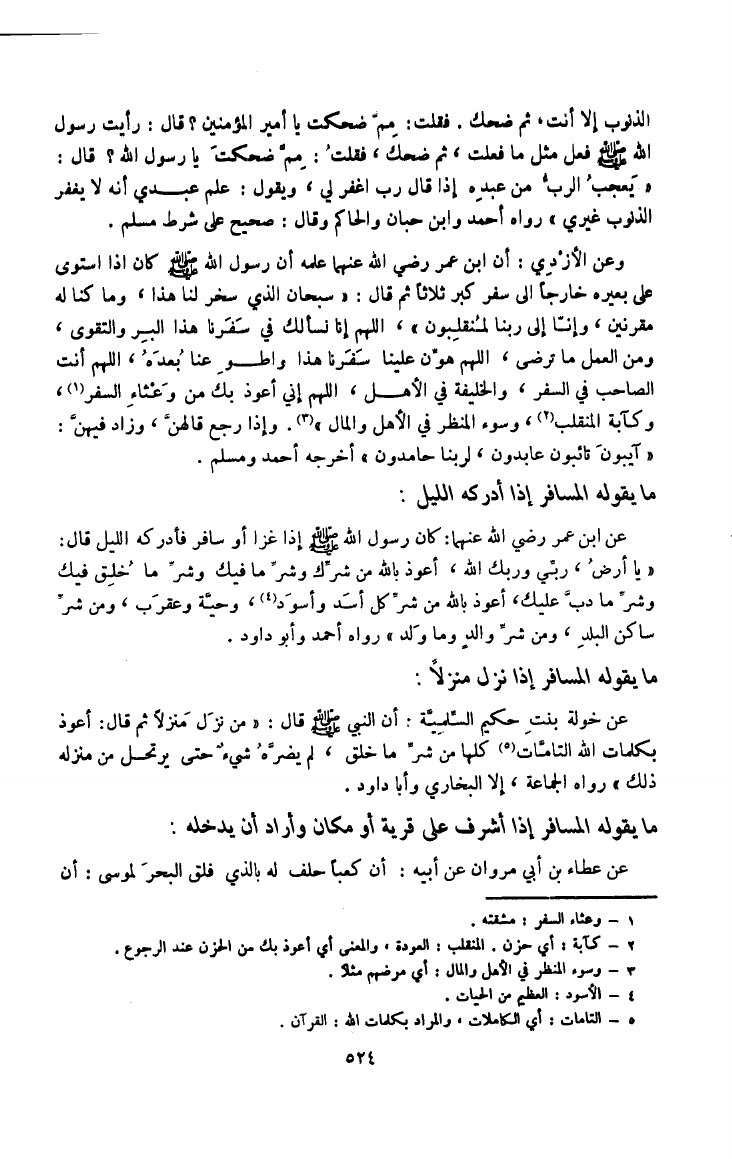 الذنوب إلا أنت، ثم ضحك . فقلت: مِمَّ ضحكت يا أمير المؤمنين ؟ قال : رأيت رسول
الله ﷺ فعل مثل ما فعلت ، ثم ضحك ، فقلتُ : مِمَّ ضحكتَ يا رسول الله ؟ قال :
« يَعجبُ الربُّ من عبدِه إذا قال رب اغفر لي ، ويقول : علم عبدي أنه لا يغفر
الذنوب غيري » رواه أحمد وابن حبان والحاكم وقال : صحيح على شرط مسلم .
وعن الأزْدي : أن ابن عمر رضي الله عنهما علمه أن رسول الله ﷺ كان اذا استوى
على بعيره خارجاً الى سفر كبر ثلاثاً ثم قال : « سبحان الذي سخر لنا هذا ، وما كنا له
مقرنين ، وإنّا إلى ربنا لمُنقلِبون » ، اللهم إنا نسألك في سَفَرنا هذا البِر والتقوى ،
ومن العمل ما ترضى ، اللهم هوّن علينا سَفَرنا هذا واطوِ عنا بُعدَهُ ، اللهم أنت
الصاحب في السفر ، والخليفة في الأهل ، اللهم إني أعوذ بك من وَعْثاءِ السفر(١) ،
وكآبة المنقلب(٢) ، وسوء المنظر في الأهل والمال »(٣) . وإذا رجع قالهنَّ ، وزاد فيهنَّ :
« آيبونَ تائبون عابدون ، لربنا حامدون » أخرجه أحمد ومسلم .
ما يقوله المسافر إذا أدركه الليل :
عن ابن عمر رضي الله عنهما: كان رسول الله ﷺ إذا غزا أو سافر فأدركه الليل قال:
« يا أرضُ ، ربّي وربك الله ، أعوذ بالله من شرِّك وشرِّ ما فيك وشرِّ ما خُلِق فيك
وشرِّ ما دبَّ عليك، أعوذ بالله من شرِّ كل أسَد وأسوَد(٤) ، وحيَّة وعقرَب ، ومن شرِّ
ساكن البلدِ ، ومن شرِّ والدٍ وما ولَد » رواه أحمد وأبو داود .
ما يقوله المسافر إذا نزل منزلاً :
عن خولة بنتِ حكيم السُّلميَّة : أن النبي ﷺ قال : « من نزَل مَنزلاً ثم قال: أعوذ
بكلمات الله التامَّات(٥) كلها من شرِّ ما خلق ، لم يضرَّهُ شيءٌ حتى يرتحل من منزله
ذلك » رواه الجماعة ، إلا البخاري وأبا داود .
ما يقوله المسافر إذا أشرف على قرية أو مكان وأراد أن يدخله :
عن عطاء بن أبي مروان عن أبيه : أن كعباً حلف له بالذي فلق البحرَ لموسى : أن
١ – وعثاء السفر : مشقته .
٢ – كآبة : أي حزن . المنقلب : العودة ، والمعنى أي أعوذ بك من الحزن عند الرجوع .
٣ – وسوء المنظر في الأهل والمال : أي مرضهم مثلاً .
٤ – الأسود : العظيم من الحيات .
٥ – التامات : أي الكاملات ، والمراد بكلمات الله : القرآن .
٥٢٤